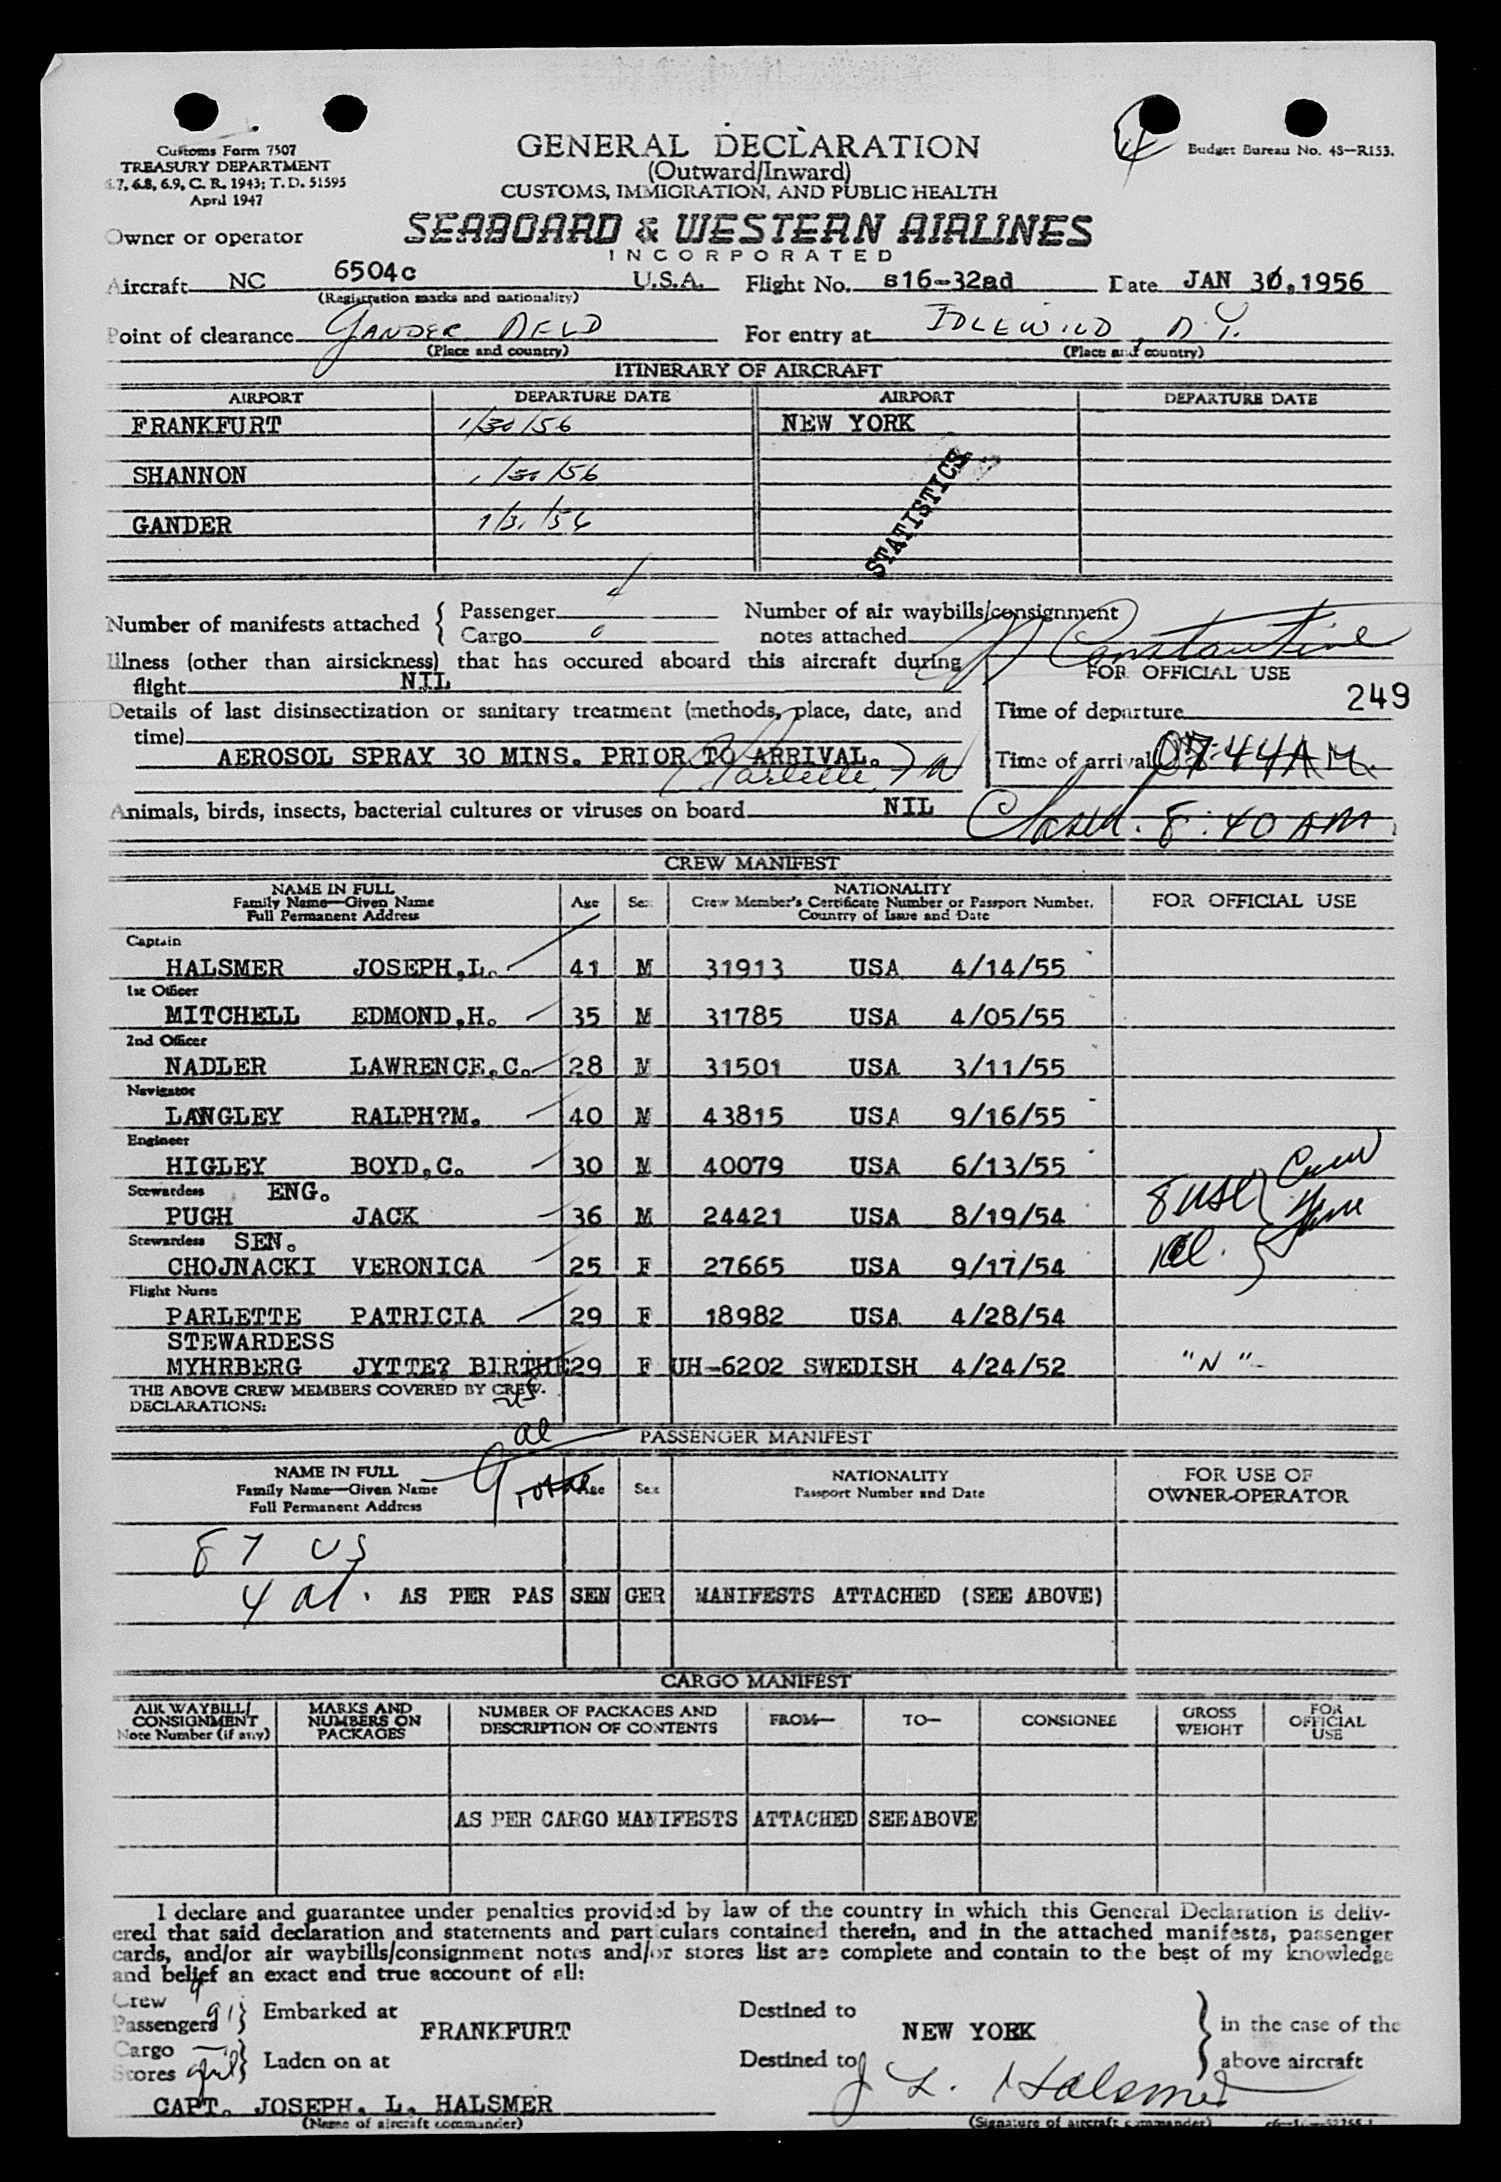 Customs Form 7507
TREASURY DEPARTMENT
6.7, 6.8, 6.9, C. R. 1943; T. D. 51595
April 1947
Budget Bureau No. 48—R153.
GENERAL DECLARATION
(Outward/Inward)
CUSTOMS, IMMIGRATION, AND PUBLIC HEALTH
Owner or operator SEABOARD & WESTERN AIRLINES
INCORPORATED
Aircraft NC 6504c U.S.A. Flight No. s16-32ad Date JAN 30,1956
(Registration marks and nationality)
Point of clearance GANDER NFLD For entry at IDLEWILD, N.Y.
(Place and country) (Place and country)
ITINERARY OF AIRCRAFT
AIRPORT DEPARTURE DATE AIRPORT DEPARTURE DATE
FRANKFURT 1/30/56 NEW YORK
SHANNON 1/30/56
GANDER 1/31/56
STATISTICS
Number of manifests attached { Passenger 4 Number of air waybills/consignment
Cargo 0 notes attached
Constantine
Illness (other than airsickness) that has occured aboard this aircraft during
flight NIL
FOR OFFICIAL USE
249
Details of last disinsectization or sanitary treatment (methods, place, date, and
time)
Time of departure
AEROSOL SPRAY 30 MINS. PRIOR TO ARRIVAL.
P. Parlette, FN
Time of arrival 07:44 AM.
Animals, birds, insects, bacterial cultures or viruses on board NIL
Closed. 8:40 AM
CREW MANIFEST
NAME IN FULL
Family Name—Given Name
Full Permanent Address
Age Sex
NATIONALITY
Crew Member's Certificate Number or Passport Number.
Country of Issue and Date
FOR OFFICIAL USE
Captain
HALSMER JOSEPH,L. 41 M 31913 USA 4/14/55
1st Officer
MITCHELL EDMOND,H. 35 M 31785 USA 4/05/55
2nd Officer
NADLER LAWRENCE,C. 28 M 31501 USA 3/11/55
Navigator
LANGLEY RALPH?M. 40 M 43815 USA 9/16/55
Engineer
HIGLEY BOYD,C. 30 M 40079 USA 6/13/55
Stewardess ENG.
PUGH JACK 36 M 24421 USA 8/19/54
8 USC } Crew
Stewardess SEN.
CHOJNACKI VERONICA 25 F 27665 USA 9/17/54
1 al.
Flight Nurse
PARLETTE PATRICIA 29 F 18982 USA 4/28/54
STEWARDESS
MYHRBERG JYTTE? BIRTHE 29 F UH-6202 SWEDISH 4/24/52 "N"
THE ABOVE CREW MEMBERS COVERED BY CREW.
DECLARATIONS:
PASSENGER MANIFEST
NAME IN FULL
Family Name—Given Name
Full Permanent Address
9 Total
Age Sex
NATIONALITY
Passport Number and Date
FOR USE OF
OWNER-OPERATOR
87 US
4 al. AS PER PAS SEN GER MANIFESTS ATTACHED (SEE ABOVE)
CARGO MANIFEST
AIR WAYBILL/
CONSIGNMENT
Note Number (if any)
MARKS AND
NUMBERS ON
PACKAGES
NUMBER OF PACKAGES AND
DESCRIPTION OF CONTENTS
FROM— TO— CONSIGNEE
GROSS
WEIGHT
FOR
OFFICIAL
USE
AS PER CARGO MANIFESTS ATTACHED SEE ABOVE
I declare and guarantee under penalties provided by law of the country in which this General Declaration is deliv-
ered that said declaration and statements and particulars contained therein, and in the attached manifests, passenger
cards, and/or air waybills/consignment notes and/or stores list are complete and contain to the best of my knowledge
and belief an exact and true account of all:
Crew 9
Passengers 91 } Embarked at FRANKFURT Destined to NEW YORK } in the case of the
Cargo —
Stores } Laden on at Destined to above aircraft
CAPT. JOSEPH. L. HALSMER J L. Halsmer
(Name of aircraft commander) (Signature of aircraft commander)